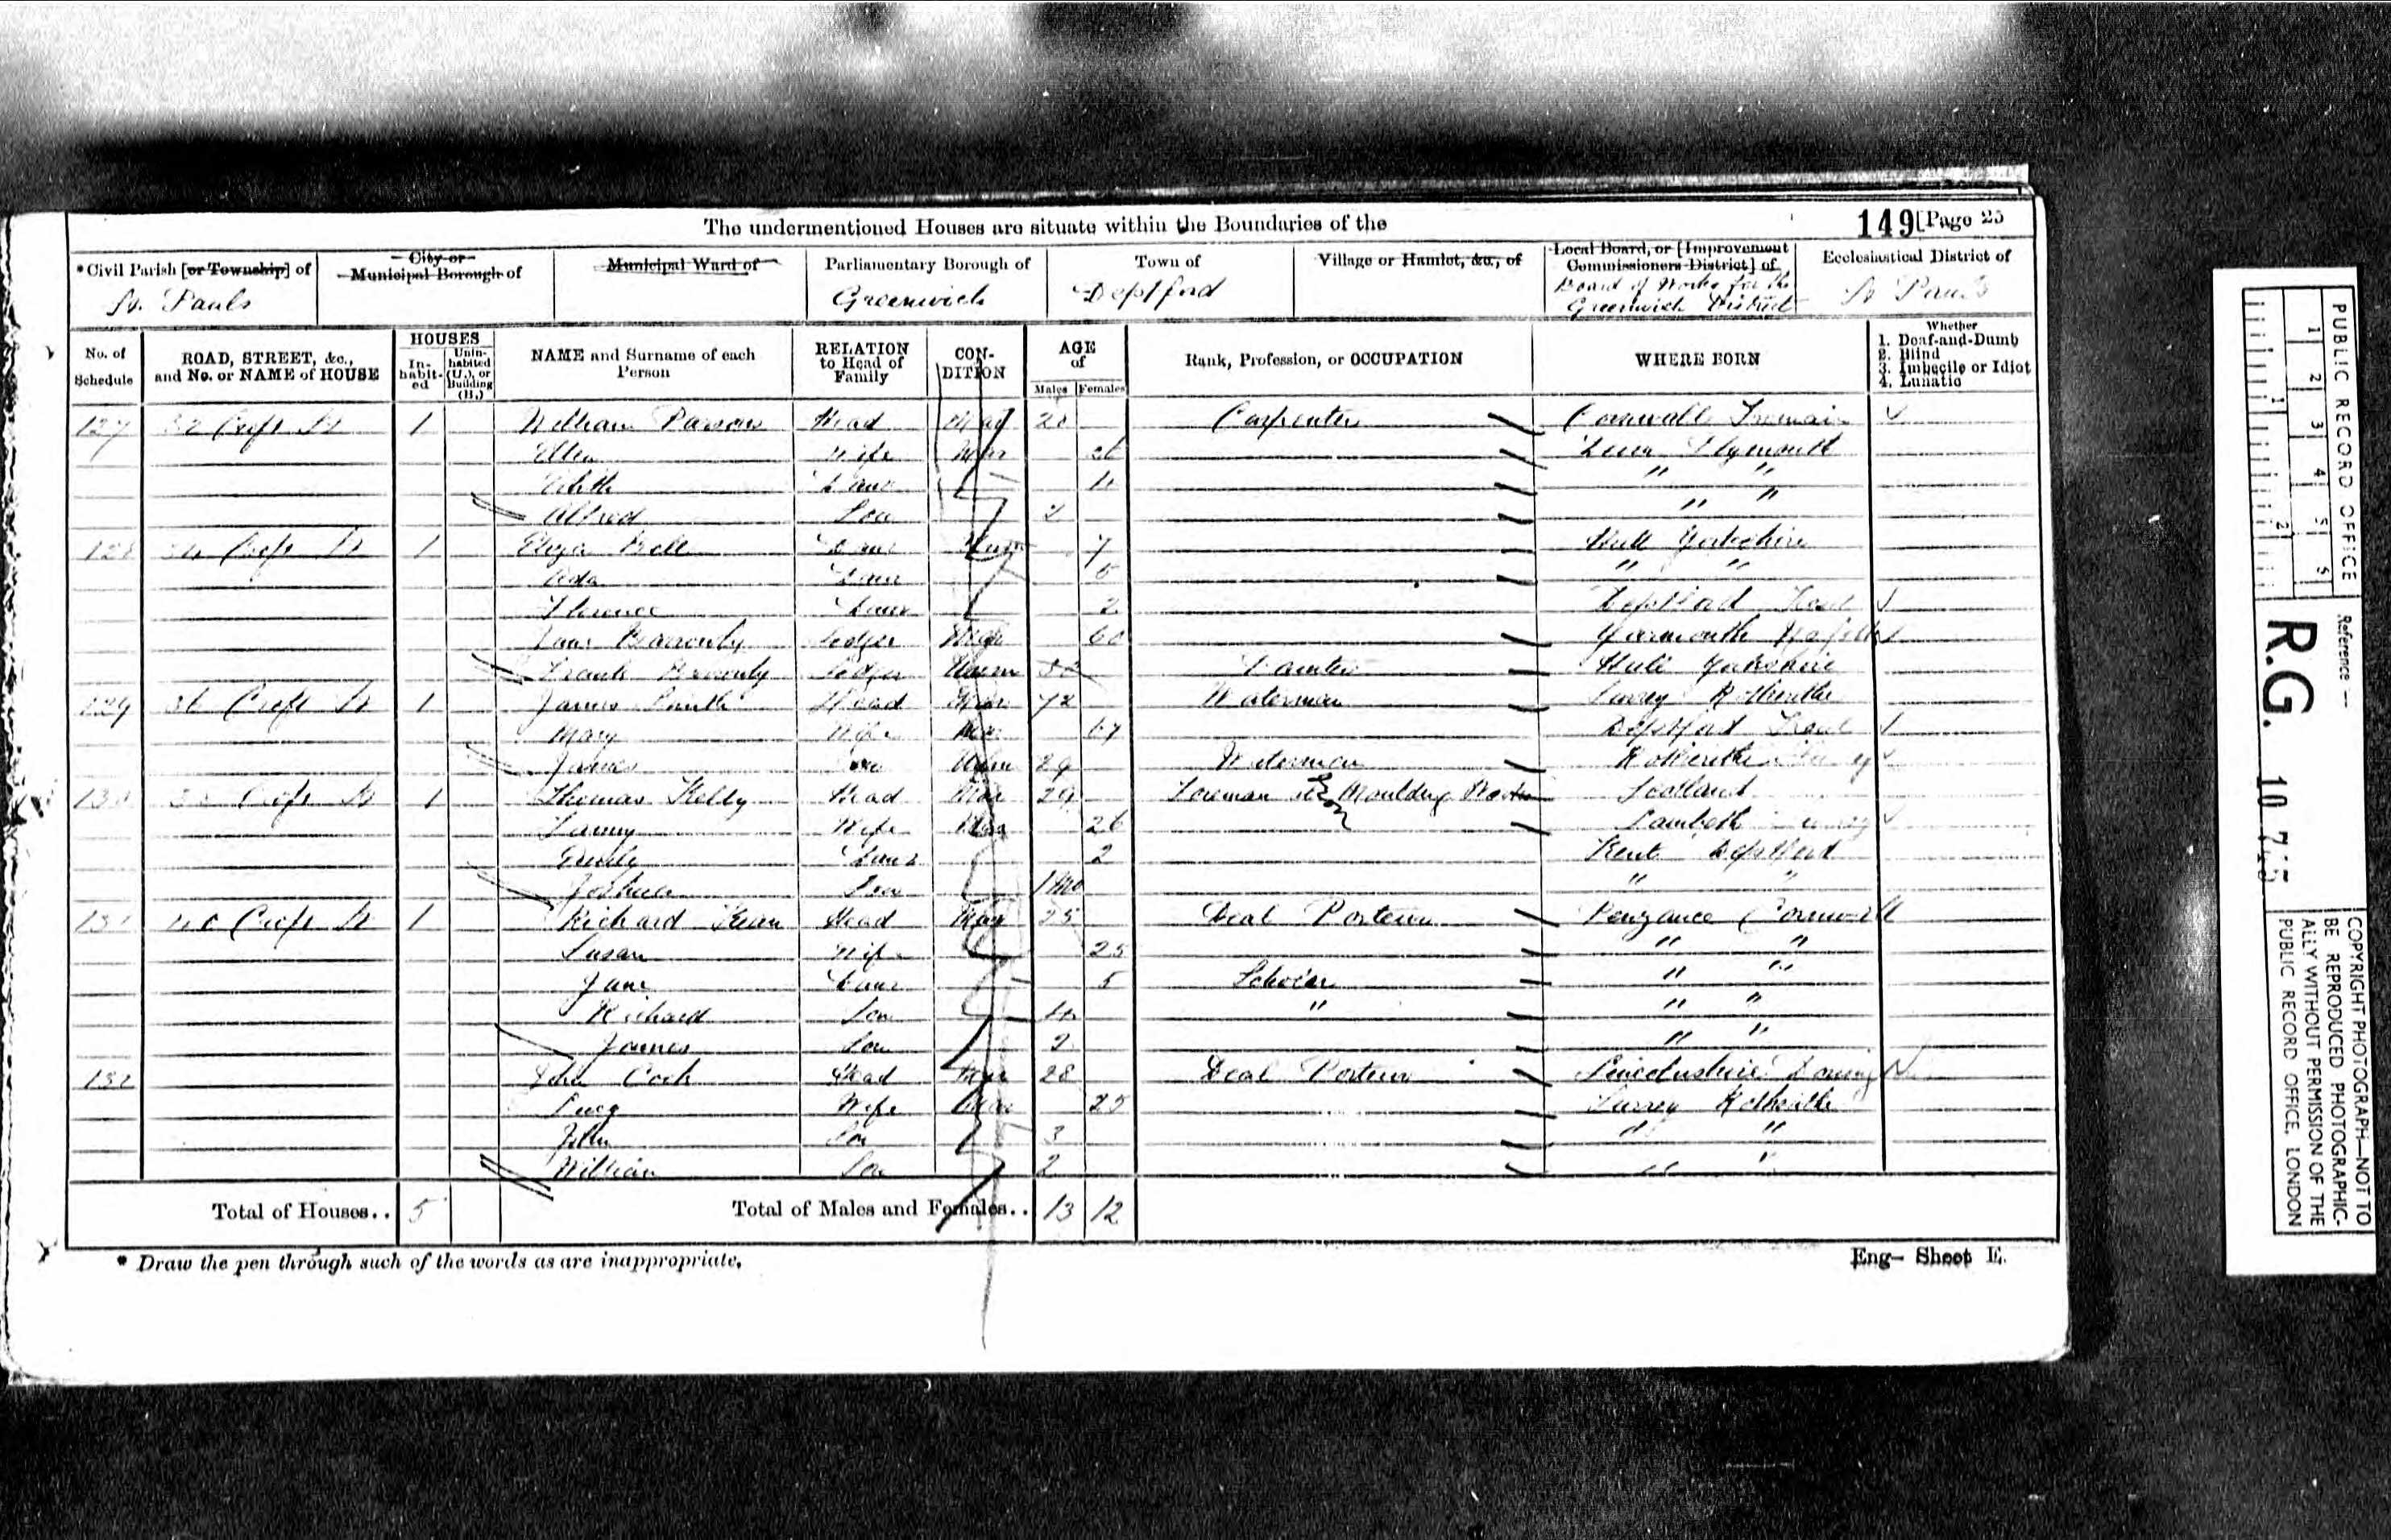 The undermentioned Houses are situate within the Boundaries of the
149 [Page 25
*Civil Parish [or Township] of
St. Pauls
City or Municipal Borough of
Municipal Ward of
Parliamentary Borough of
Greenwich
Town of
Deptford
Village or Hamlet, &c., of
Local Board, or [Improvement Commissioners District] of
Board of Works for the
Greenwich District
Ecclesiastical District of
St Pauls
No. of Schedule
ROAD, STREET, &c., and No. or NAME of HOUSE
HOUSES
In-habit-ed
Unin-habited (U.), or Building (B.)
NAME and Surname of each Person
RELATION to Head of Family
CON-DITION
AGE of
Males Females
Rank, Profession, or OCCUPATION
WHERE BORN
Whether
1. Deaf-and-Dumb
2. Blind
3. Imbecile or Idiot
4. Lunatic
127 32 Croft St 1 William Parsons Head Mar 28 Carpenter Cornwall
Ellen Wife Mar 26 Plymouth
Edith Daur 4 " "
Alfred Son " "
128 34 Croft St 1 Eliza Bell Daur Unm 7 Hull Yorkshire
Ada Daur " "
Florence Daur 2 Deptford Kent
Jane Lodger 60 Yarmouth Norfolk
Frank Lodger Unm Hull Yorkshire
129 36 Croft St 1 James Smith Head Mar 72 Waterman Surrey Rotherhithe
Mary Wife Mar 67 Deptford Kent
James Son Unm 29 Waterman Rotherhithe Surrey
130 38 Croft St 1 Thomas Kelly Head Mar 29 Foreman Moulding Works Scotland
Fanny Wife Mar 26 Lambeth Surrey
Daur 2 Kent Deptford
Joshua Son 1 mo " "
131 40 Croft St 1 Richard Head Mar 25 Deal Porter Penzance Cornwall
Susan Wife 25 " "
Jane Daur 5 Scholar " "
Richard Son 4 " " "
James Son 2 " "
132 John Cook Head Mar 28 Deal Porter Lincolnshire
Lucy Wife Mar 25 Surrey Rotherhithe
John Son 3 " "
William Son 2 " "
Total of Houses.. 5
Total of Males and Females.. 13 12
* Draw the pen through such of the words as are inappropriate.
Eng— Sheet E.
PUBLIC RECORD OFFICE
1 2 3 4 5 5
1 2
Reference —
R.G. 10
COPYRIGHT PHOTOGRAPH—NOT TO
BE REPRODUCED PHOTOGRAPHIC-
ALLY WITHOUT PERMISSION OF THE
PUBLIC RECORD OFFICE, LONDON